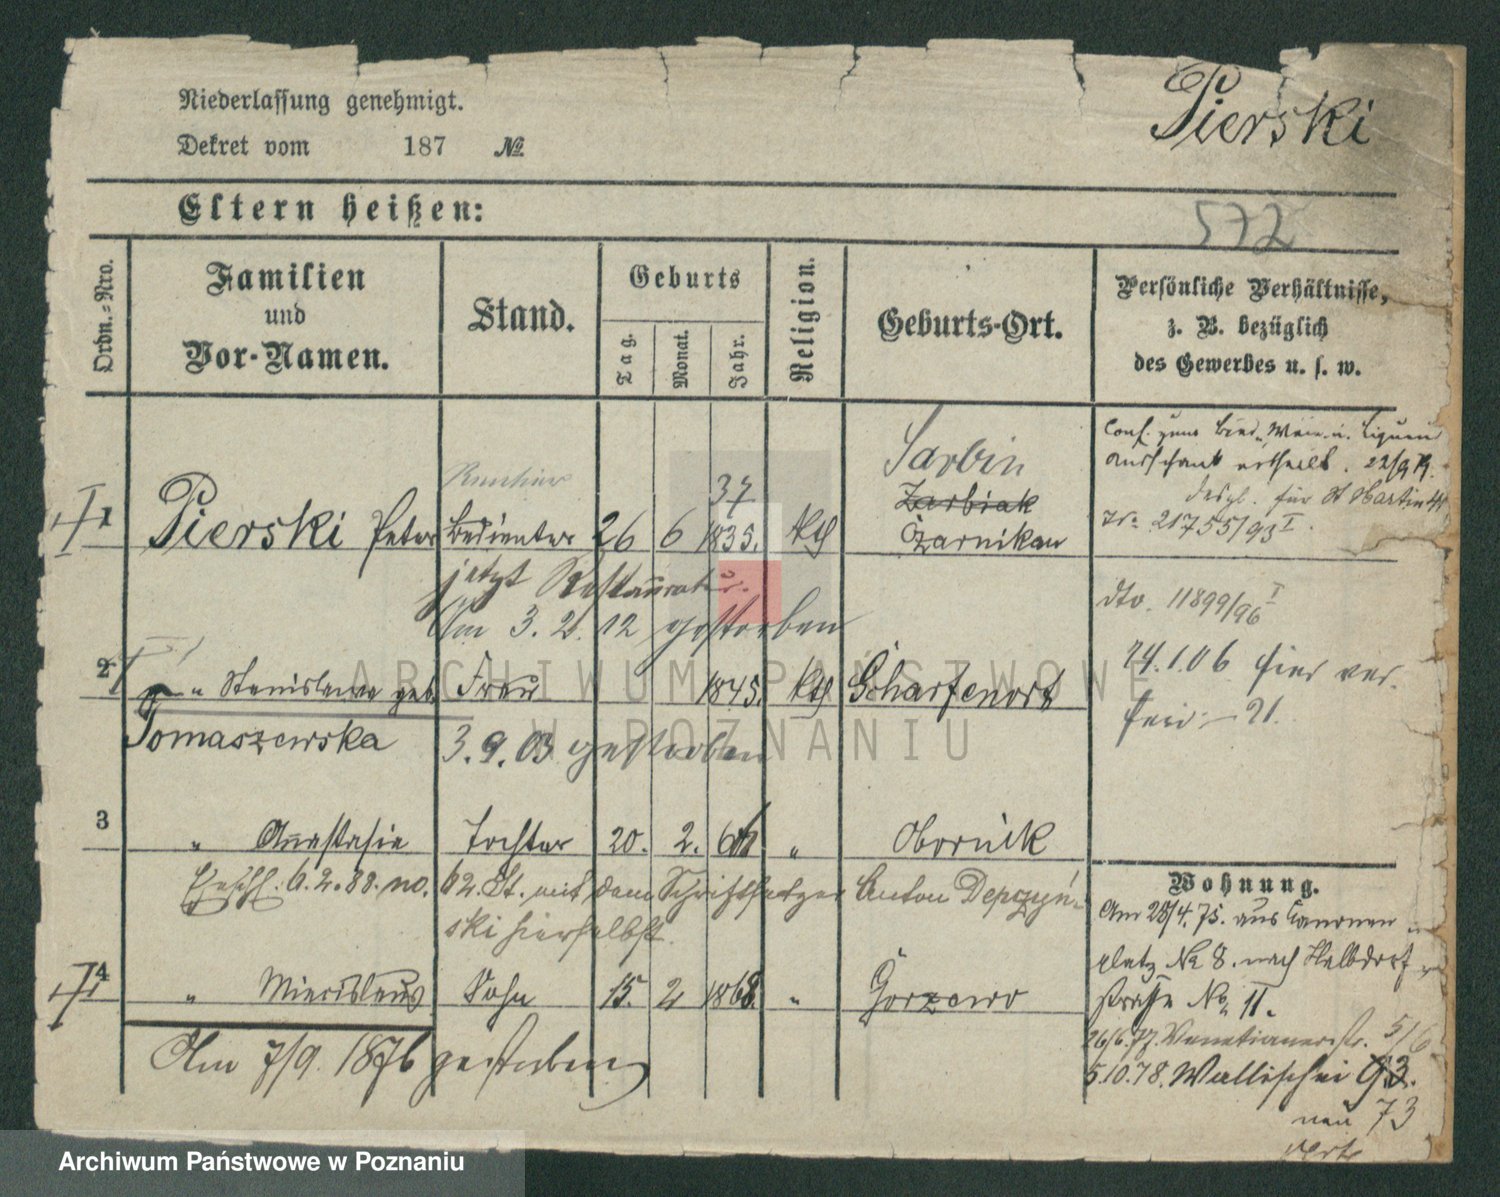 Niederlassung genehmigt.
Dekret vom 187 No
Pierski
Eltern heißen:
572
Ordn.-Nro.
Familien
und
Vor-Namen.
Stand.
Geburts
Tag.
Monat.
Jahr.
Religion.
Geburts-Ort.
Persönliche Verhältnisse,
z. B. bezüglich
des Gewerbes u. s. w.
Conf. zum Bier, Wein u. Liqueur
ausschank ertheilt. 22/9 79.
desgl. für St Martin 41
IV. 21755/93 I.
dto. 11899/96 I
24.1.06 hier ver.
1 Pierski Peter
Rentier
Bedienter 26 6 1835. kth
37
Sarbin
Zarbiak
Czarnikau
jetzt Restaurateur.
Am 3. 2. 12 gestorben
2 " Stanislawa geb. Frau 1845. kth. Scharfenort
Tomaszewska 3.9.03 gestorben
3 " Annastasia Tochter 20. 2. " Obornik
Eheschl. 6.2.88. no. 62. St. mit dem Schriftsetzer Anton Depczyń-
ski hierselbst.
4 " Miecislaus Sohn 15. 2 1868. " Gorzewo
Am 7/9. 1876 gestorben
Wohnung.
Am 28/4.75. aus Kanonen
platz No 8. nach Halbdorf
straße No. 11.
26/6.77. Venetianerstr. 5/6
5.10.78. Wallischei 93.
neu 73
verte
ARCHIWUM PAŃSTWOWE
W POZNANIU
Archiwum Państwowe w Poznaniu